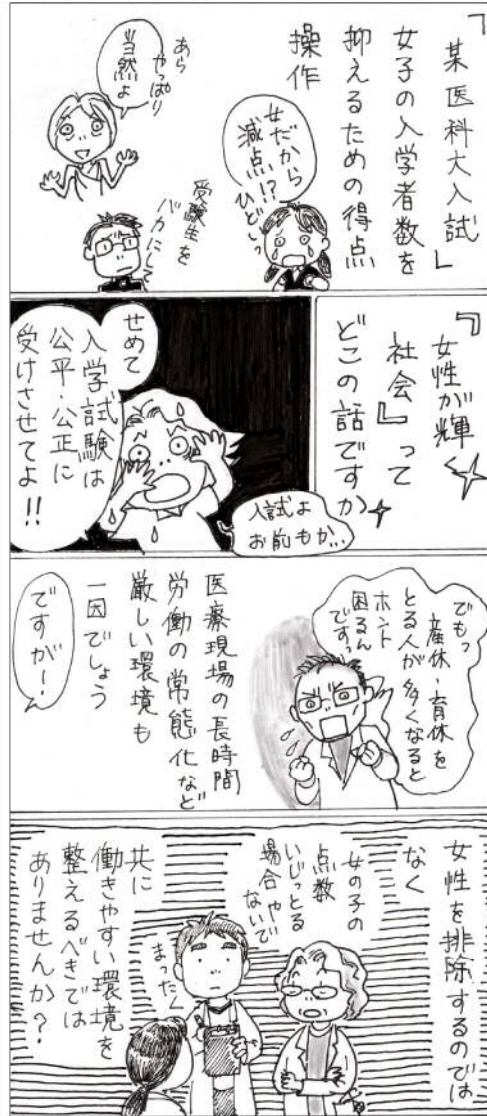 「某医科大入試」
女子の入学者数を
抑えるための得点
操作
女だから
減点!?
ひどい
受験生を
バカにして
あら
やっぱり
当然よ
『女性が輝く
社会』って
どこの話ですか
せめて
入学試験は
公平・公正に
受けさせてよ!!
入試よ
お前もか…
でもっ
産休・育休を
とる人が多くなると
ホント
困るん
ですっ
医療現場の長時間
労働の常態化など
厳しい環境も
一因でしょう
ですが!
女性を排除するのでは
なく
女の子の
点数
いじっとる
場合や
ないで
まったく
共に
働きやすい環境を
整えるべきでは
ありませんか?